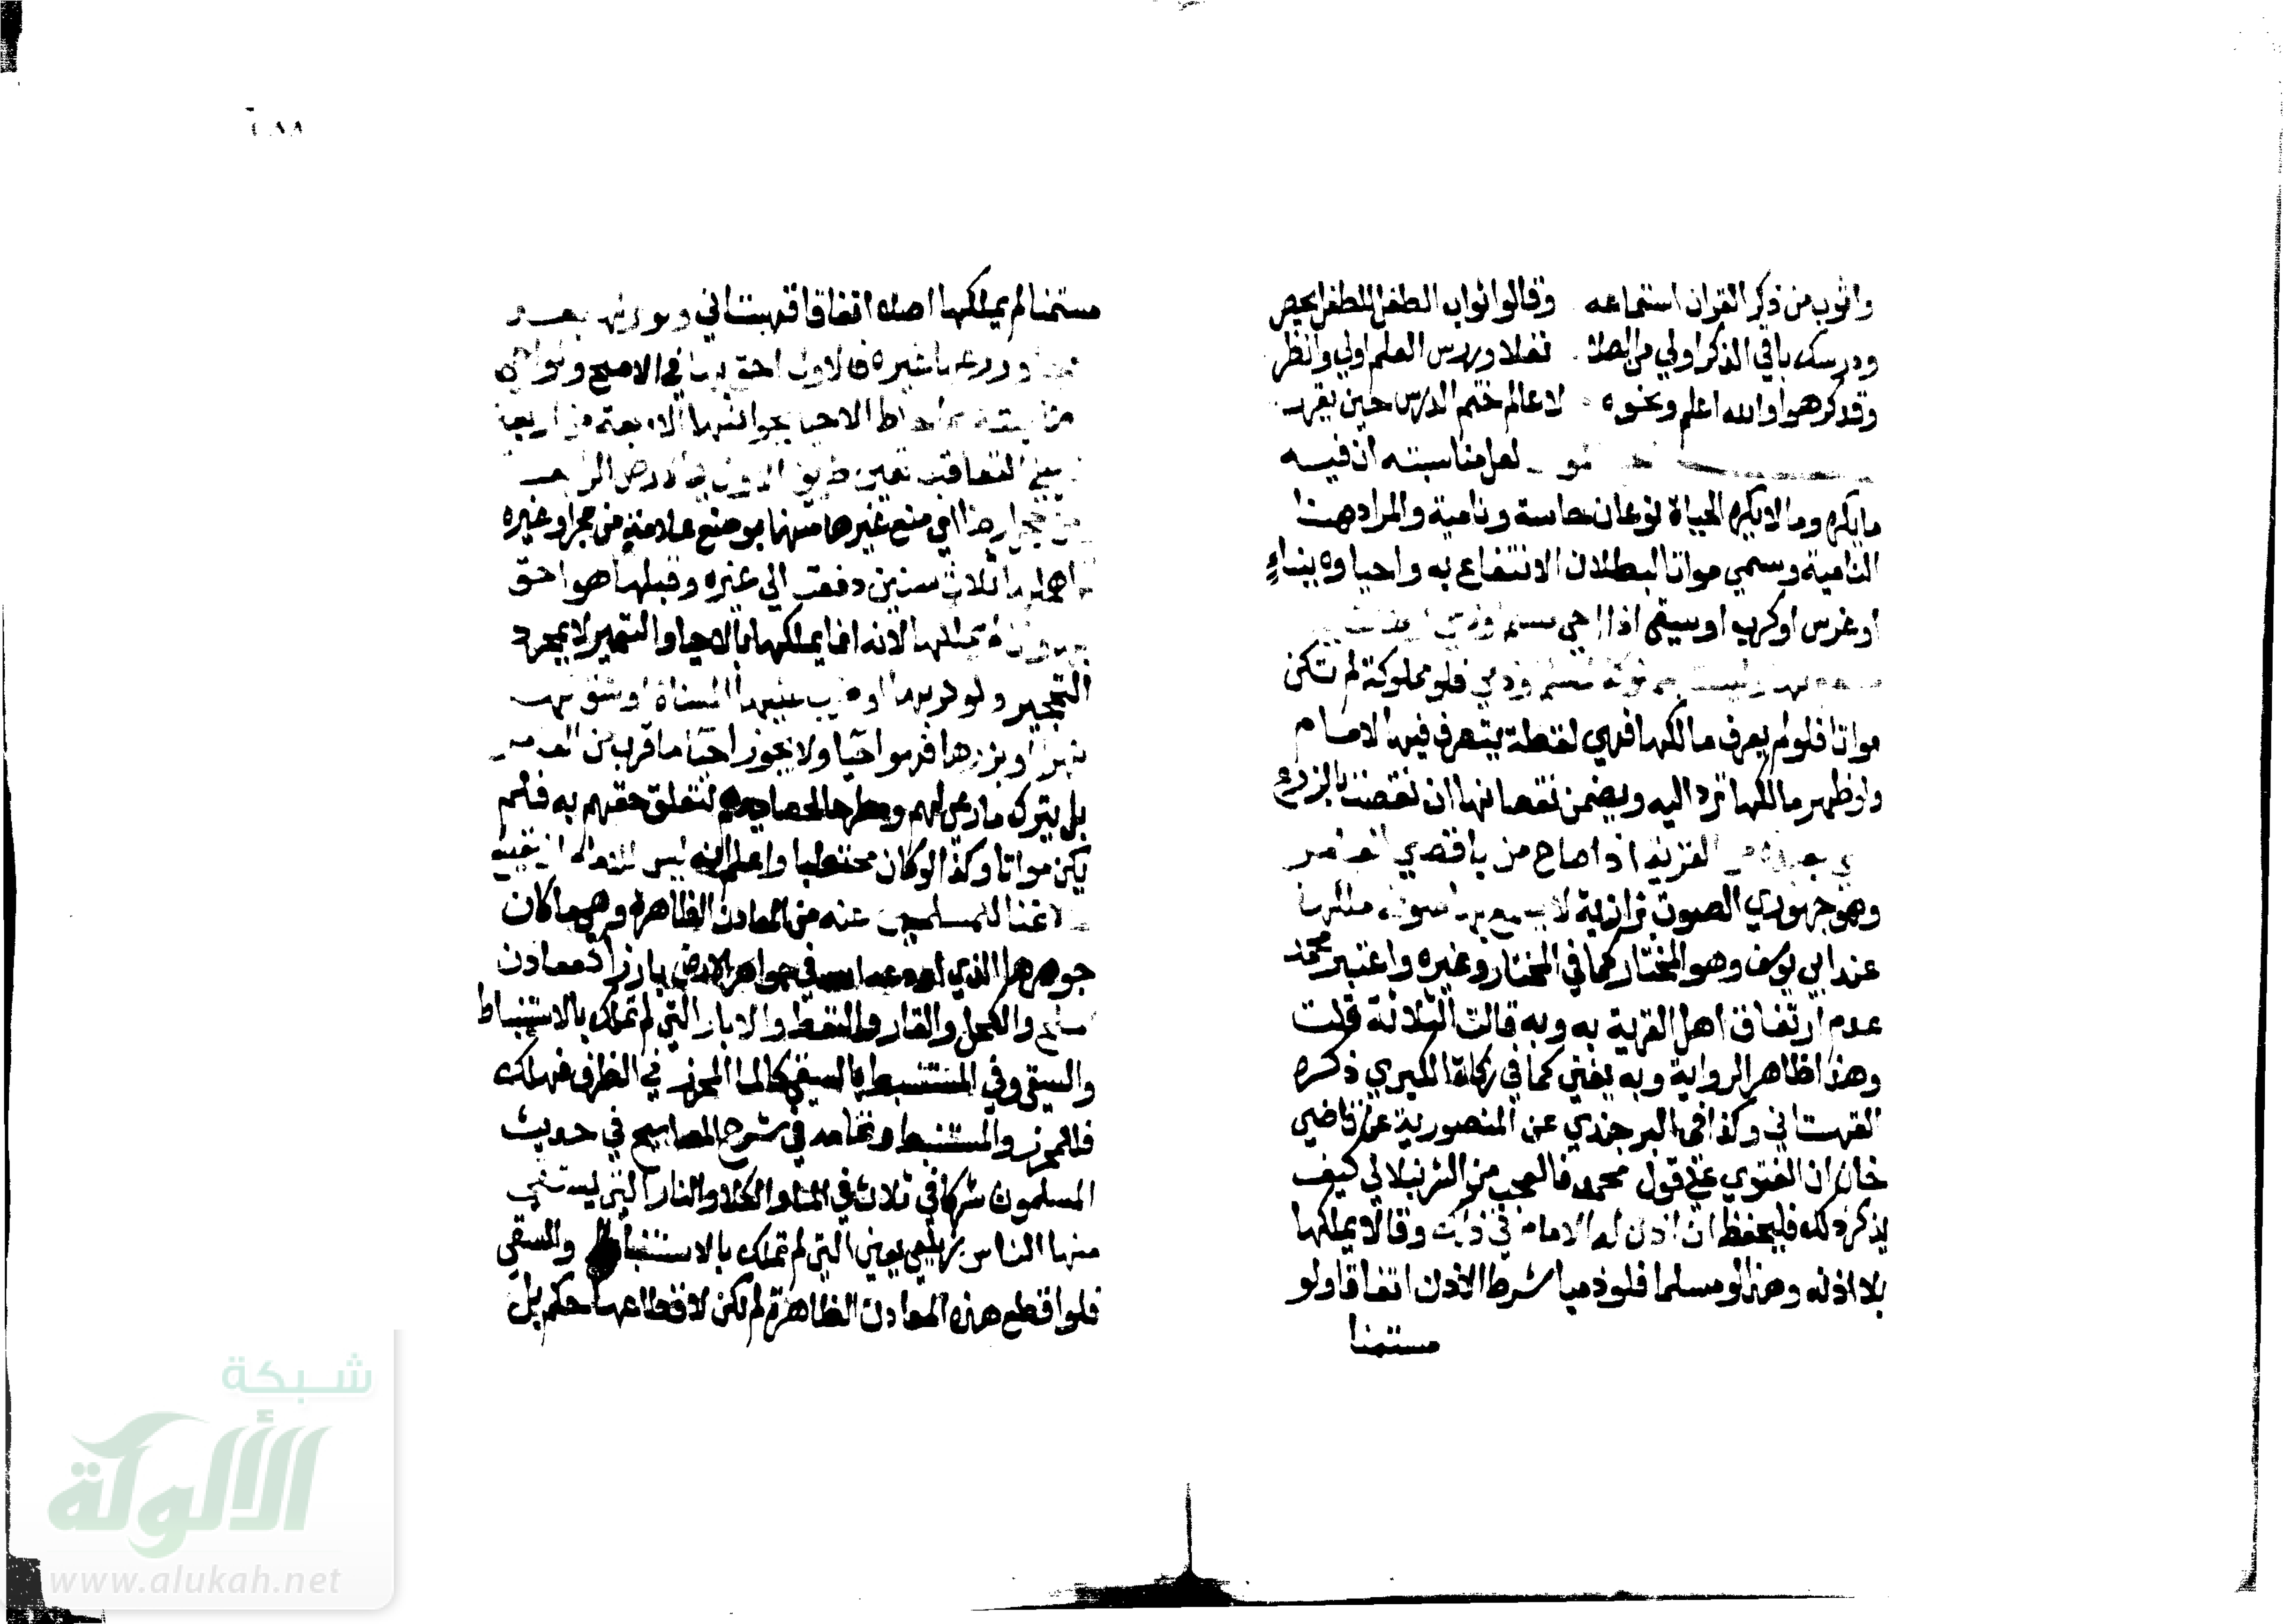 واثوب من ذكر القران استماعه وقالوا ثواب الطفل للطفل يحصر
ودرسك باقي الذكر اولي من الصلاة نفلا ودرس العلم اولي وانظر
وقد كرهوا والله اعلم ونحوه لاعالم ختم الدرس حين يقرر
لعل مناسبته ان فيه
ما يكره وما لا يكره الحياة نوعان حاسة ونامية والمراد هنا
النامية وسمي مواتا لبطلان الانتفاع به واحياوه ببناءٍ
او غرس او كرب او سقي اذا احي مسلم او ذمي
مسلم وذمي فلو مملوكة لم تكن
مواتا فلو لم يعرف مالكها فهي لقطة يتصرف فيها الامام
ولو ظهر مالكها ترد اليه ويضمن نقصانها ان نقصت بالزرع
القرية اذا صاح من باقصي
وهو جهوري الصوت بزازية لا يسمع بها صوته ملكها
عند ابي يوسف وهو المختار كما في المختار وغيره واعتبر محمد
عدم ارتفاق اهل القرية به وبه قالت الثلاثة قلت
وهذا ظاهر الرواية وبه يفتي كما في زكاة الكبري ذكره
القهستاني وكذا في البرجندي عن المنصورية عن قاضي
خان ان الفتوي علي قول محمد فالعجب من الشرنبلالي كيف
يذكر ذلك فليحفظ ان اذن له الامام في ذلك وقالا يملكها
بلا اذنه وهذا لو مسلما فلو ذميا شرط الاذن اتفاقا ولو
مستمنا
مستمنا لم يملكها اصلا اتفاقا قهستاني
فالاول احق بها في الاصح
الاحيا بجوانبها الاربعة من اربعة
التعاقب تعين طريق الاول في الارض الرابعة
اي منع غيرها منها بوضع علامة من حجر او غيره
اهملها ثلاث سنين دفعت الي غيره وقبلها هو احق
لانه انما يملكها بالاحيا والتعمير لا بمجرد
التحجير ولو كربها او ضرب عليها المسناة او شق لها
نهرا او بزرها فهو احيا ولا يجوز احيا ما قرب من العامر
بل يترك مرعي لهم ومطرحا لحصايدهم لتعلق حقهم به فلم
يكن مواتا وكذا لو كان محتطبا واعلم انه ليس للامام ان يقطع
لا غنا للمسلمين عنه من المعادن الظاهرة وهي ما كان
جوهرها الذي اودعه الله في جواهر الارض بارزا كمعادن
الملح والكحل والقار والنفط والابار التي لم تملك بالاستنباط
والسقي وفي المستنبط بالسقي كالما المحرز في الظرف فيملك
فللمحرز والمستنبط وتمامه في شرح المصابيح في حديث
المسلمون شركا في ثلاث في الما والكلا والنار التي يستقي
منها الناس زيلعي يعني التي لم تملك بالاستنباط والسقي
فلو اقطع هذه المعادن الظاهرة لم يكن لاقطاعها حكم بل
شبكة
الألوكة
www.alukah.net